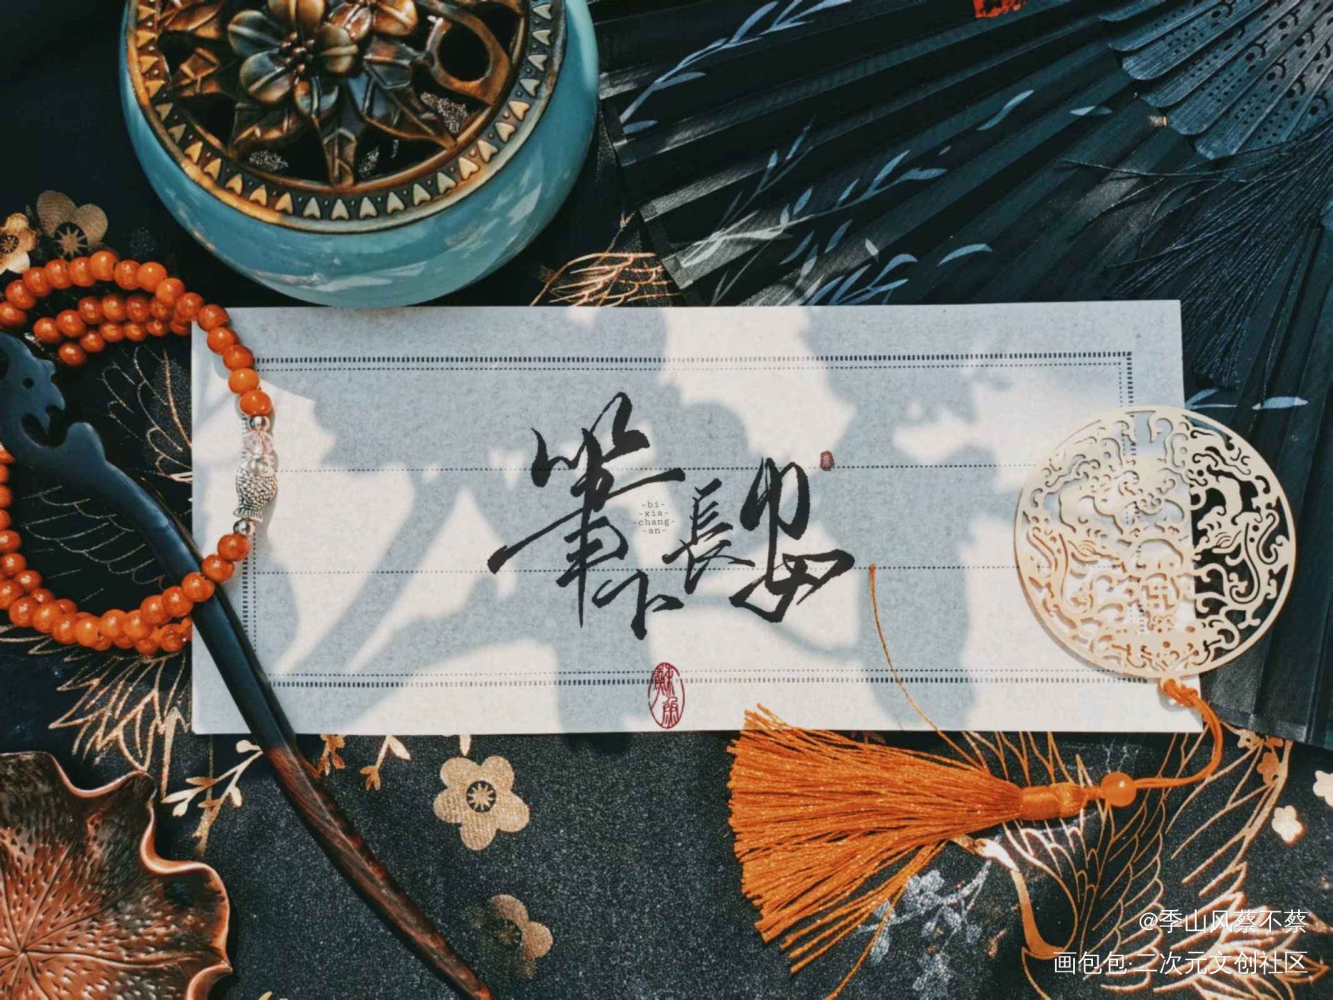 筆下長安
-bi-
-xia-
-chang-
-an-
@季山风蔡不蔡
画包包·二次元文创社区